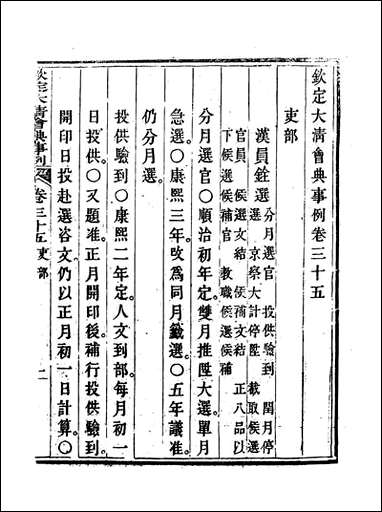 欽定大清會典事例卷三十五
吏部
漢員銓選 分月選官 投供驗到 閏月停
選 京察大計停陞 截取候選
官員 候選文結 候補文結 正八品以
下候選候補官 教職候選候補
分月選官○順治初年定。雙月推陞大選。單月
急選。○康熙三年。攺爲同月籤選。○五年議准。
仍分月選。
投供驗到○康熙二年定。人文到部。每月初一
日投供。○又題准。正月開印後。補行投供驗到。
開印日投赴選咨文。仍以正月初一日計算。○
欽定大清會典事例 卷三十五 吏部